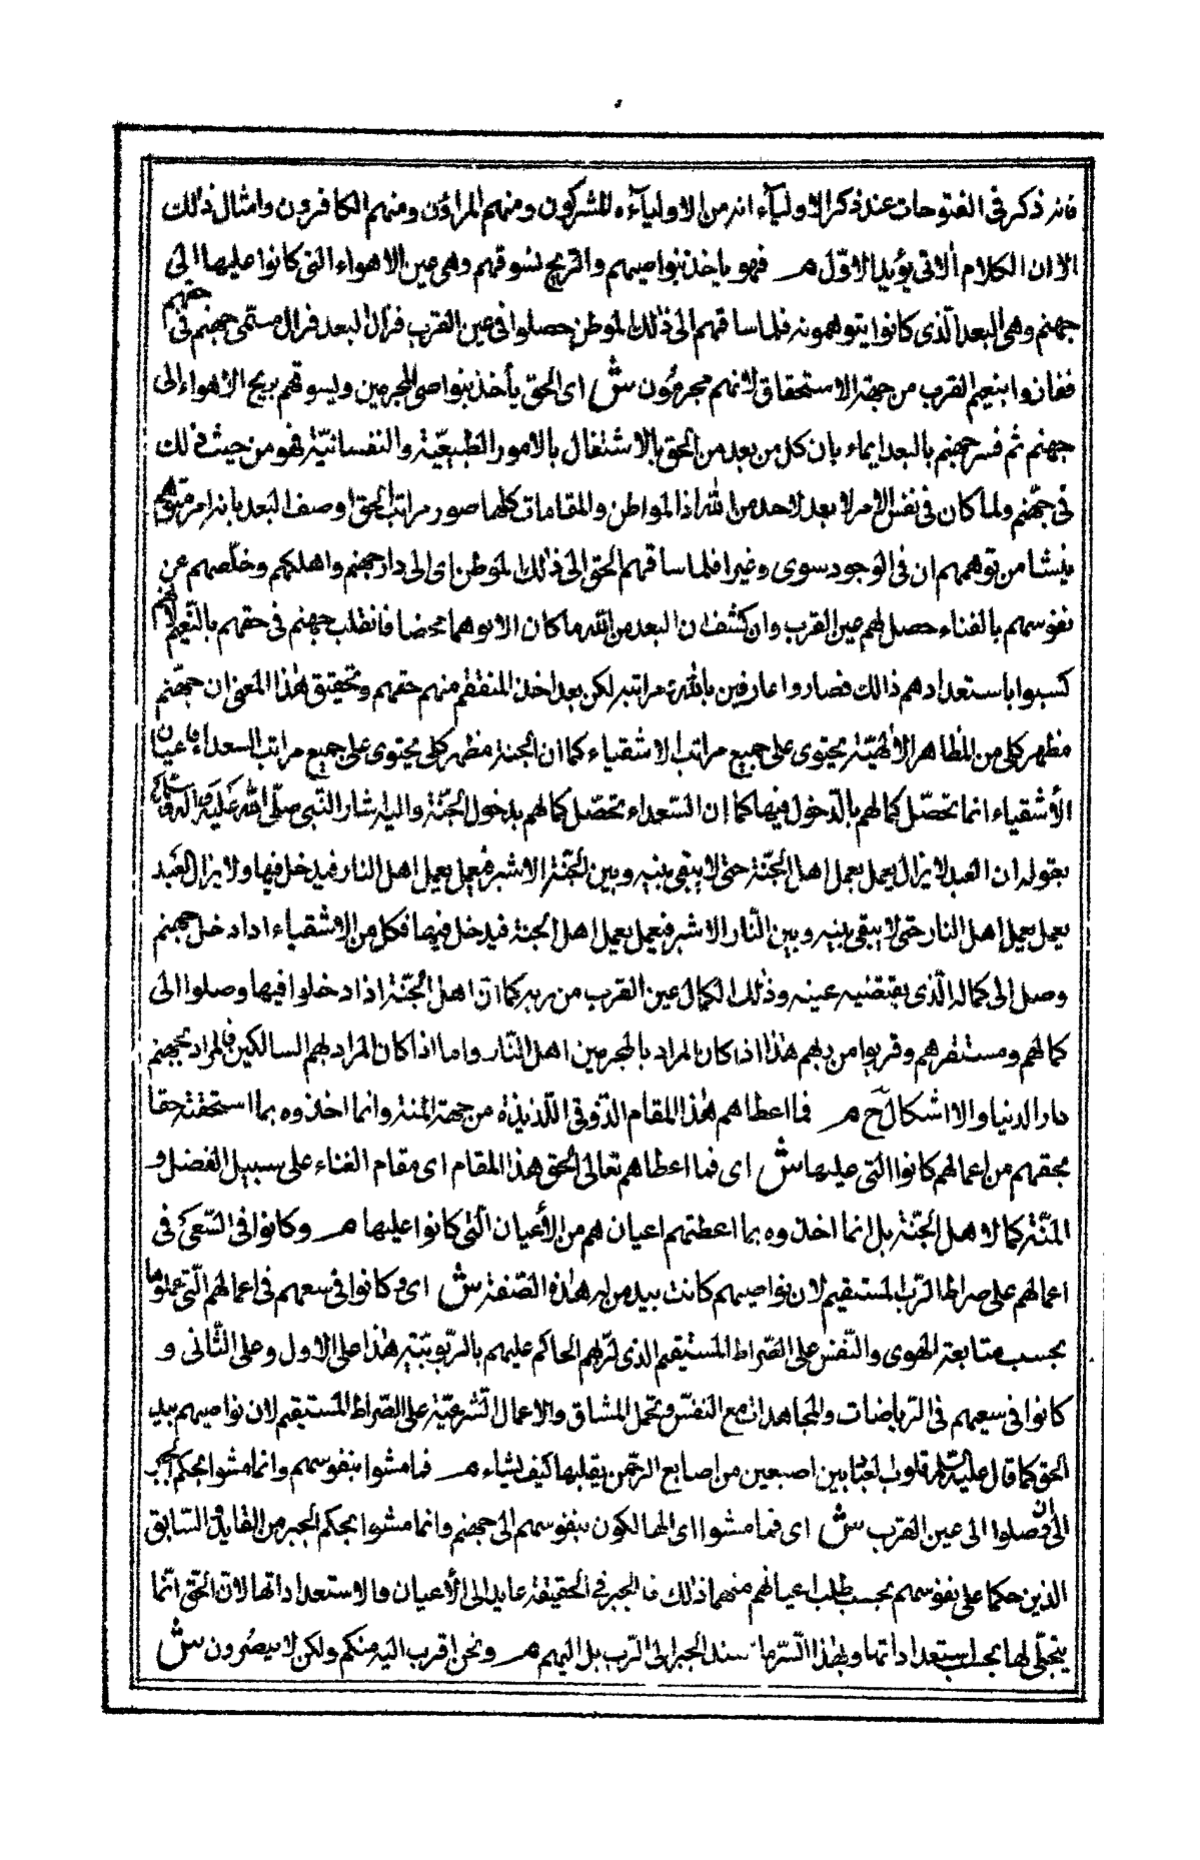 فانه ذكر فى الفتوحات عند ذكر الاولياء انه من الاولياء المشركون ومنهم المراؤن ومنهم الكافرون وامثال ذلك
الا ان الكلام الاتى يؤيد الاوّل م فهو ياخذ بنواصيهم والريح تسوقهم وهى عين الاهواء التى كانوا عليها الى
جهنم وهى البعد الّذى كانوا يتوهمونه فلما ساقهم الى ذلك الموطن حصلوا فى عين القرب فزال البعد فزال مسمّى جهنم فى حقهم
ففازوا بنعيم القرب من جهة الاستحقاق لانهم مجرمون ش اى الحق يأخذ بنواصى المجرمين ويسوقهم بريح الاهواء الى
جهنم ثم فسر جهنم بالبعد ايماء بان كل من بعد من الحق بالاشتغال بالامور الطبيعيّة والنفسانيّة فهو من حيث ذلك
فى جهنّم ولما كان فى نفس الامر لا بعد لاحد من الله اذ المواطن والمقامات كلها صور مراتب الحق وصف البعد بانه امر متوهم
ينشا من توهمهم ان فى الوجود سوى وغيرا فلما ساقهم الحق الى ذلك الموطن اى الى دار جهنم واهلكهم وخلّصهم عن
نفوسهم بالفناء حصل لهم عين القرب وان كشف ان البعد من الله ما كان الا توهما محضا فانقلب جهنم فى حقهم بالنّعيم لانهم
كسبوا باستعدادهم ذلك فصاروا عارفين بالله مراتبه لكن بعد اخذ المنتقم منهم حقهم وتحقيق هذا المعنى ان جهنّم
مظهر كلى من المظاهر الالهيّة يحتوى على جميع مراتب الاشقياء كما ان الجنة مظهر كلى يحتوى على جميع مراتب السعداء فاعيان
الأشقياء انما تحصّل كمالهم بالدّخول فيها كما ان السّعداء تحصّل كمالهم بدخول الجنّة واليه اشار النّبى صلّى الله عليه واله وسلم
بقوله ان العبد لا يزال يعمل بعمل اهل الجنّة حتى لا يبقى بينه وبين الجنّة الا شبر فيعمل بعمل اهل النار فيدخل فيها ولا يزال العبد
يعمل بعمل اهل النار حتى لا يبقى بينه وبين النّار الا شبر فيعمل بعمل اهل الجنة فيدخل فيها فكل من الاشقياء اذا دخل جهنم
وصل الى كماله الّذى يقتضيه عينه وذلك الكمال عين القرب من ربه كما انّ اهل الجنّة اذا دخلوا فيها وصلوا الى
كمالهم ومستقرهم وقربوا من ربهم هذا اذا كان المراد بالمجرمين اهل النّار واما اذا كان المراد بهم السالكين فالمراد بجهنم
دار الدنيا ولا اشكال ح م فما اعطاهم هذا المقام الذّوقى اللّذيذة من جهة المنة وانما اخذوه بما استحقته حقا
يحقهم من اعمالهم كانوا التى عليها ش اى فما اعطاهم تعالى الحق هذا المقام اى مقام الفناء على سبيل الفضل و
المنّة كما لاهل الجنّة بل انما اخذوه بما اعطتهم اعيان هم من الأعيان الّتى كانوا عليها م وكانوا فى السّعى فى
اعمالهم على صراط الرّب المستقيم لان نواصيهم كانت بيد من له هذه الصّفة ش اى وكانوا فى سعيهم فى اعمالهم الّتى عملوها
بحسب متابعة الهوى والنّفس على الصّراط المستقيم الذى لربّهم الحاكم عليهم بالرّبوبيّة هذا على الاول وعلى الثّانى و
كانوا فى سعيهم فى الرّياضات والمجاهدات مع النفس وتحمّل المشاق والاعمال الشّرعيّة على الصّراط المستقيم لان نواصيهم بيد
الحق كما قال عليه السلام قلوب العباد بين اصبعين من اصابع الرحمن يقلبها كيف يشاء م فما مشوا بنفوسهم وانما مشوا بحكم الجبر
الى ان وصلوا الى عين القرب ش اى فما مشوا اى الهالكون بنفوسهم الى جهنم وانما مشوا بحكم الجبر من القايد والسّابق
الذين حكما على نفوسهم بحسب طلب اعيانهم منهما ذلك فالجبر فى الحقيقة عايد الى الأعيان والاستعداداتها لانّ الحق انّما
يتجلّى لها بحسب استعداداتها ولهذا السّر ما نسند الجبر الى الرّب بل اليهم م ونحن اقرب اليه منكم ولكن لا تبصرون ش